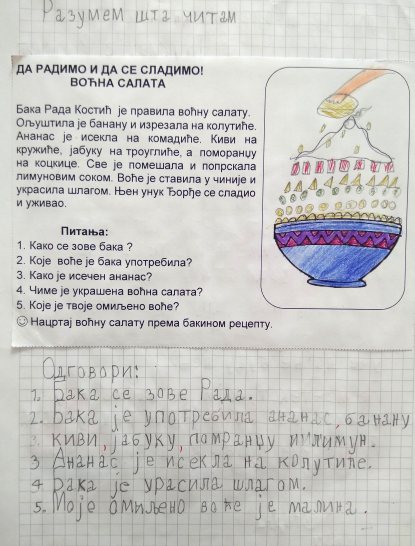 Разумем шта читам
ДА РАДИМО И ДА СЕ СЛАДИМО!
ВОЋНА САЛАТА
Бака Рада Костић је правила воћну салату.
Ољуштила је банану и изрезала на колутиће.
Ананас је исекла на комадиће. Киви на
кружиће, јабуку на троуглиће, а поморанџу
на коцкице. Све је помешала и попрскала
лимуновим соком. Воће је ставила у чиније и
украсила шлагом. Њен унук Ђорђе се сладио
и уживао.
Питања:
1. Како се зове бака ?
2. Које воће је бака употребила?
3. Како је исечен ананас?
4. Чиме је украшена воћна салата?
5. Које је твоје омиљено воће?
☺ Нацртај воћну салату према бакином рецепту.
Одговори:
1. Бака се зове Рада.
2. Бака је употребила ананас, банану
3. киви, јабуку, помранџу и лимун.
3 Ананас је исекла на колутиће.
4 Бака је урасила шлагом.
5. Моје омиљено воће је малина.